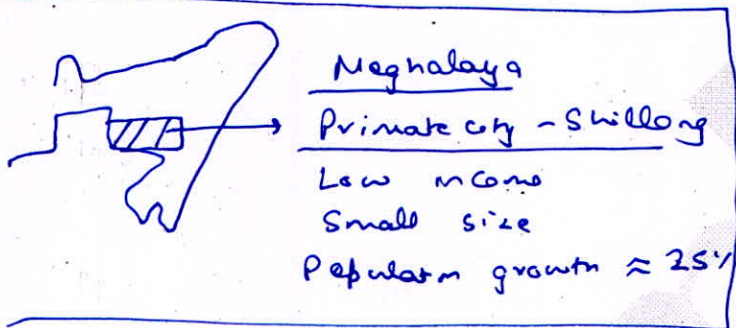 Meghalaya
Primate city - Shillong
Low income
Small size
Population growth ≈ 25%